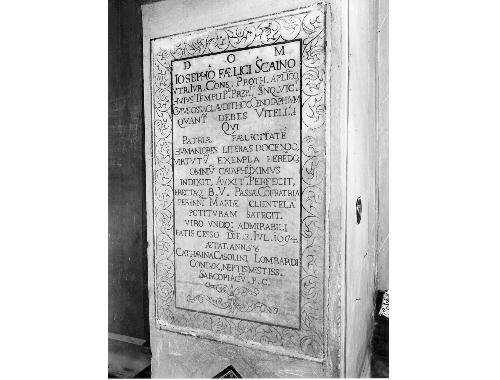 D. O. M
IOSEPHO FÆLICI SCAINO
VTR. IVR. CONS. PROTH. APLICO
HVIVS TEMPLI P. PREP.
QVANT DEBES VITELLI
QVI
PATRIÆ FÆLICITATĒ
HVMANIORES LITERAS DOCENDO,
VIRTVTV̄ EXEMPLA EDENDO,
OMNIV̄
INDIXIT, AVXIT, PERFECIT,
ERECTAQ. B. V. PASSÆ COFRATRIA
PERENNI MARIÆ CLIENTELA
POTITVRAM SATEGIT.
VIRO VNDIQ. ADMIRABILI
FATIS CESSO DIE 2 IVL. 1694
ÆTAT. ANN. 56
CATHARINA CASOLINI LOMBARDI
CONIVX, NEPTIS MESTISS.
SARCOPHAGV̄ P. C.